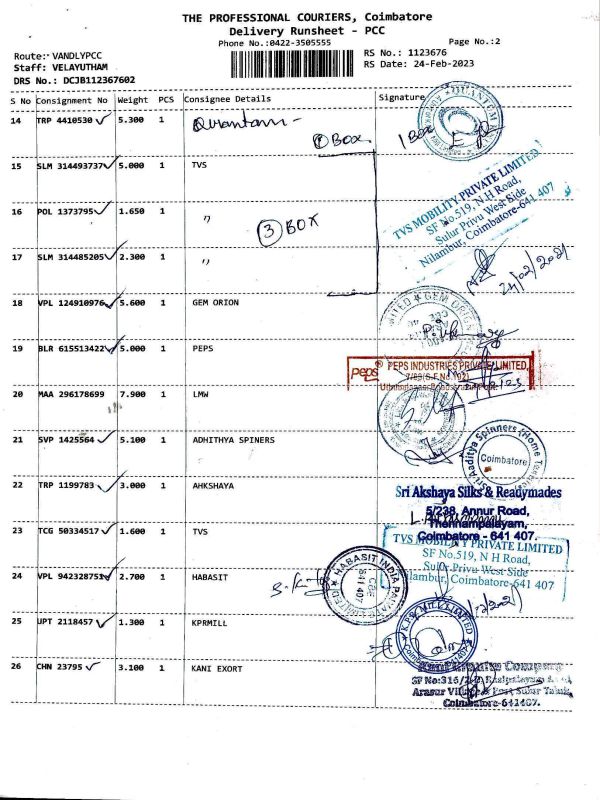 THE PROFESSIONAL COURIERS, Coimbatore
Delivery Runsheet - PCC
Phone No.:0422-3505555
Page No.:2
Route:- VANDLYPCC
Staff: VELAYUTHAM
DRS No.: DCJB112367602
RS No.: 1123676
RS Date: 24-Feb-2023
S No Consignment No Weight PCS Consignee Details Signature
14 TRP 4410530 5.300 1
① BOX
1 BOX
15 SLM 314493737 5.000 1 TVS
TVS MOBILITY PRIVATE LIMITED
SF No.519, N H Road,
Sulur Privu West Side
Nilambur, Coimbatore-641 407
16 POL 1373795 1.650 1 "
③ BOX
17 SLM 314485205 2.300 1 "
18 VPL 124910976 5.600 1 GEM ORION
19 BLR 615513422 5.000 1 PEPS
peps® PEPS INDUSTRIES PRIVATE LIMITED,
20 MAA 296178699 7.900 1 LMW
21 SVP 1425564 5.100 1 ADHITHYA SPINERS
Coimbatore
22 TRP 1199783 3.000 1 AHKSHAYA
Sri Akshaya Silks & Readymades
5/238, Annur Road,
Thennampalayam,
Coimbatore - 641 407.
23 TCG 50334517 1.600 1 TVS
TVS MOBILITY PRIVATE LIMITED
SF No.519, N H Road,
Sulur Privu West Side
Nilambur, Coimbatore-641 407
24 VPL 942328751 2.700 1 HABASIT
HABASIT INDIA PRIVATE LIMITED
CBE
641 407
25 UPT 2118457 1.300 1 KPRMILL
K.P.R. MILL LIMITED
26 CHN 23795 3.100 1 KANI EXORT
Coimbatore-641407.